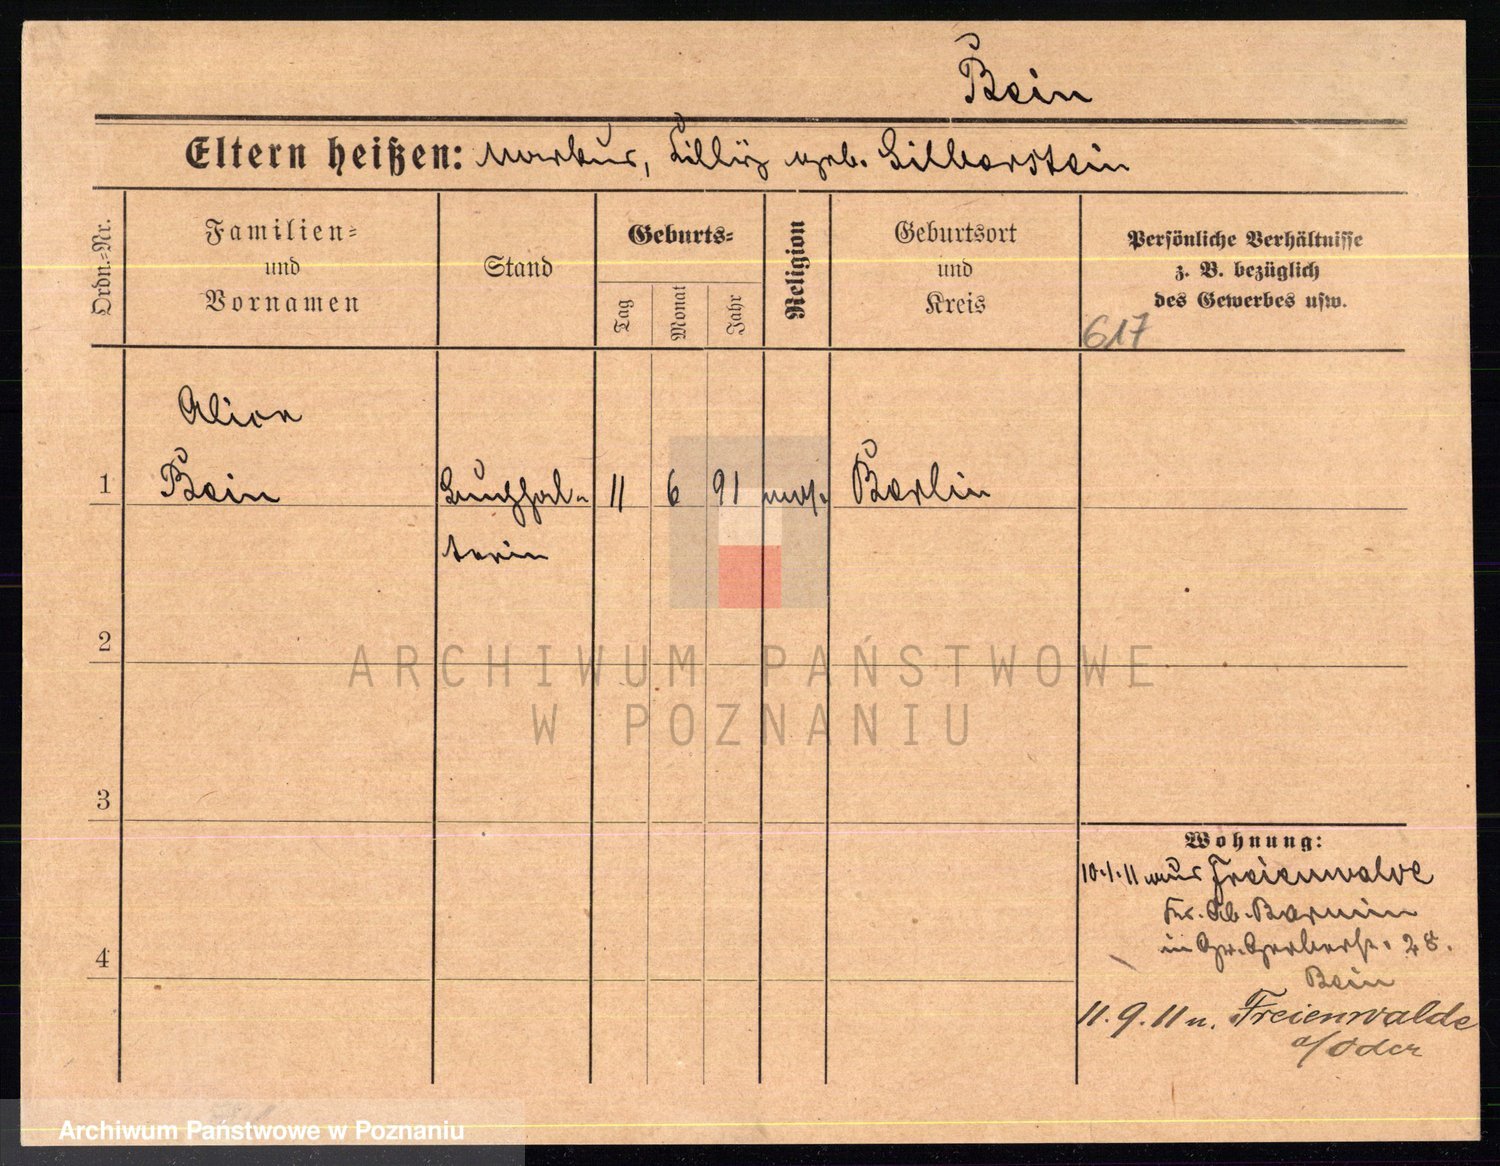 Bein
Eltern heißen: Markus, Lilly geb. Silberstein
Ordn.-Nr.
Familien-
und
Vornamen
Stand
Geburts-
Tag
Monat
Jahr
Religion
Geburtsort
und
Kreis
Persönliche Verhältnisse
z. B. bezüglich
des Gewerbes usw.
617
Alice
1 Bein Buchhal- 11 6 91 mos. Berlin
terin
2
3
4
Wohnung:
10.1.11 aus Freienwalde
Kr. Ob. Barnim
in Gr. Gerberstr. 28.
Bein
11.9.11 n. Freienwalde
a/Oder
ARCHIWUM PAŃSTWOWE
W POZNANIU
Archiwum Państwowe w Poznaniu